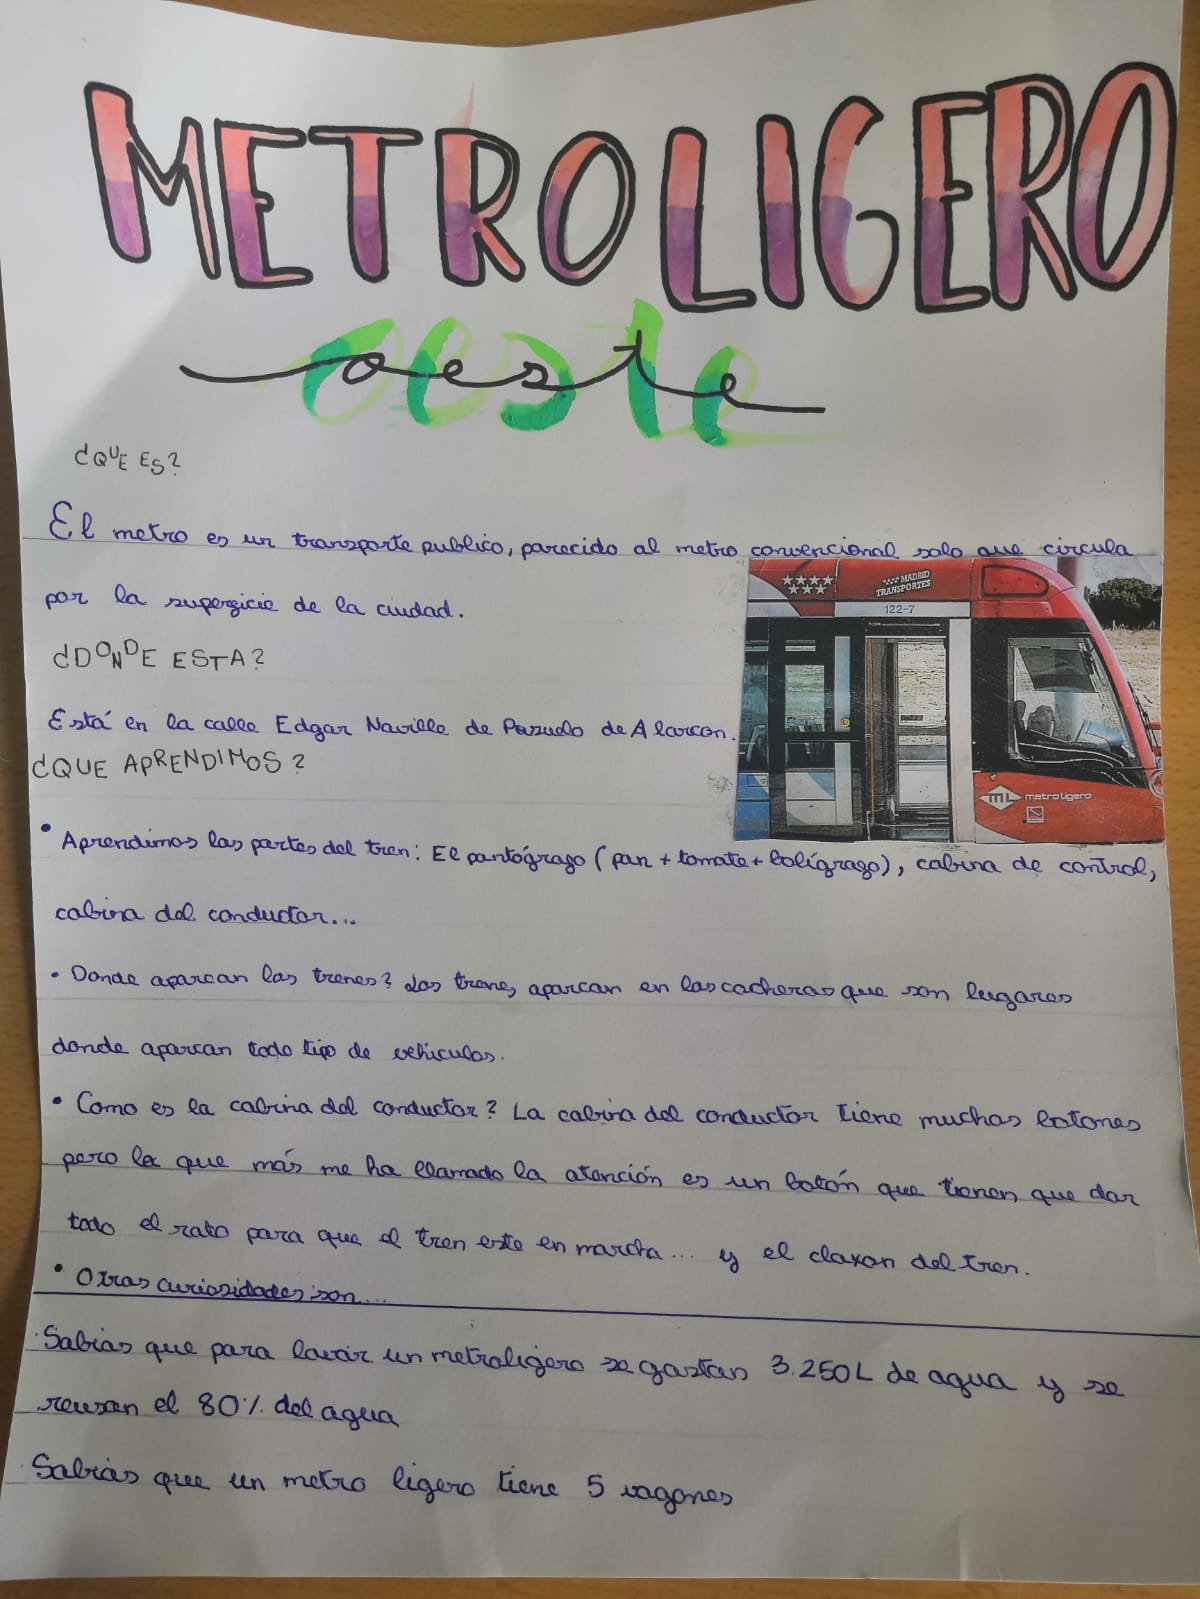 METRO LIGERO
oeste
¿QUE ES?
El metro es un transporte publico, parecido al metro convencional solo que circula
por la superficie de la ciudad.
MADRID
TRANSPORTES
122-7
¿DONDE ESTA?
Está en la calle Edgar Naville de Pozuelo de Alarcon.
ML metroligero
¿QUE APRENDIMOS?
• Aprendimos las partes del tren: El pantógrafo (pan + tomate + bolígrafo), cabina de control,
cabina del conductor...
• Donde aparcan los trenes? Los trenes aparcan en las cocheras que son lugares
donde aparcan todo tipo de vehiculos.
• Como es la cabina del conductor? La cabina del conductor tiene muchos botones
pero lo que más me ha llamado la atención es un botón que tienen que dar
todo el rato para que el tren este en marcha... y el claxon del tren.
• Otras curiosidades son...
Sabias que para lavar un metroligero se gastan 3.250L de agua y se
reusan el 80% del agua
Sabias que un metro ligero tiene 5 vagones